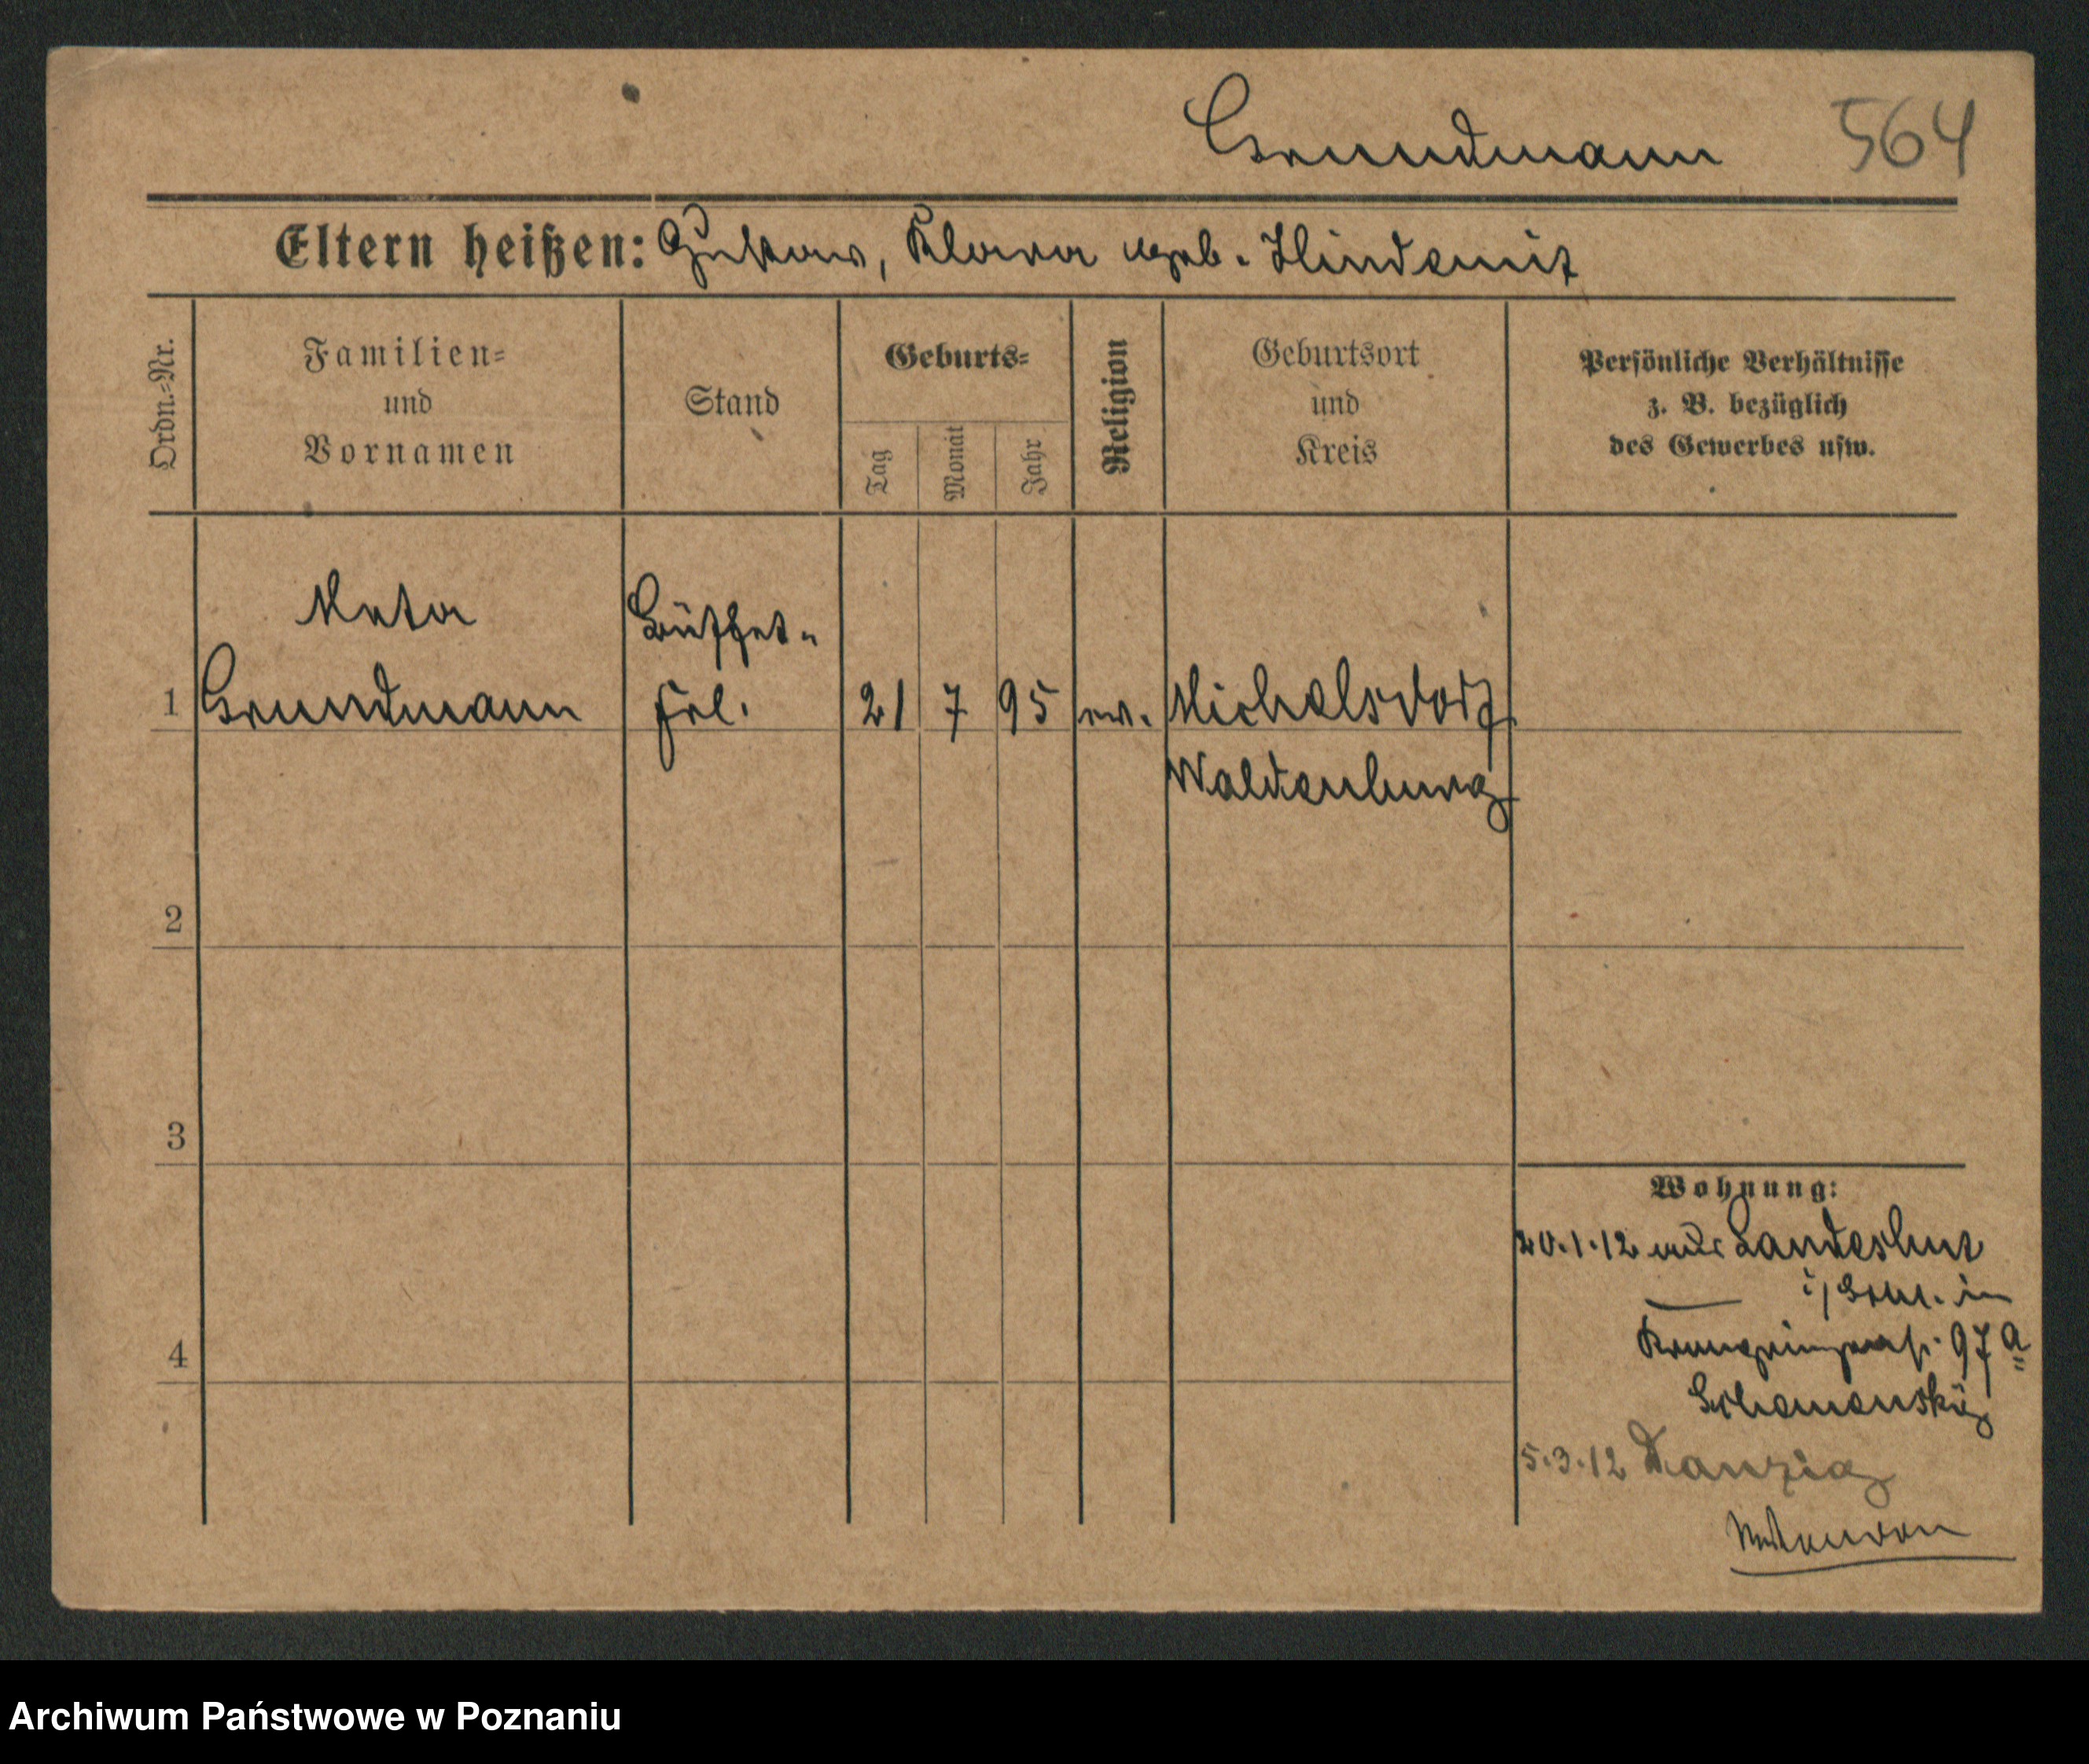 Grundmann 564
Eltern heißen: Gustav, Klara geb. Hindemit
Ordn.-Nr.
Familien-
und
Vornamen
Stand
Geburts-
Tag
Monat
Jahr
Religion
Geburtsort
und
Kreis
Persönliche Verhältnisse
z. B. bezüglich
des Gewerbes usw.
Meta
Büffet-
1 Grundmann Frl. 21 7 95 ev. Michelsdorf
Waldenburg
2
3
Wohnung:
20.1.12 aus Landeshut
i/Schl. in
4
Kronprinzenstr. 97a
5.3.12 Danzig
Archiwum Państwowe w Poznaniu